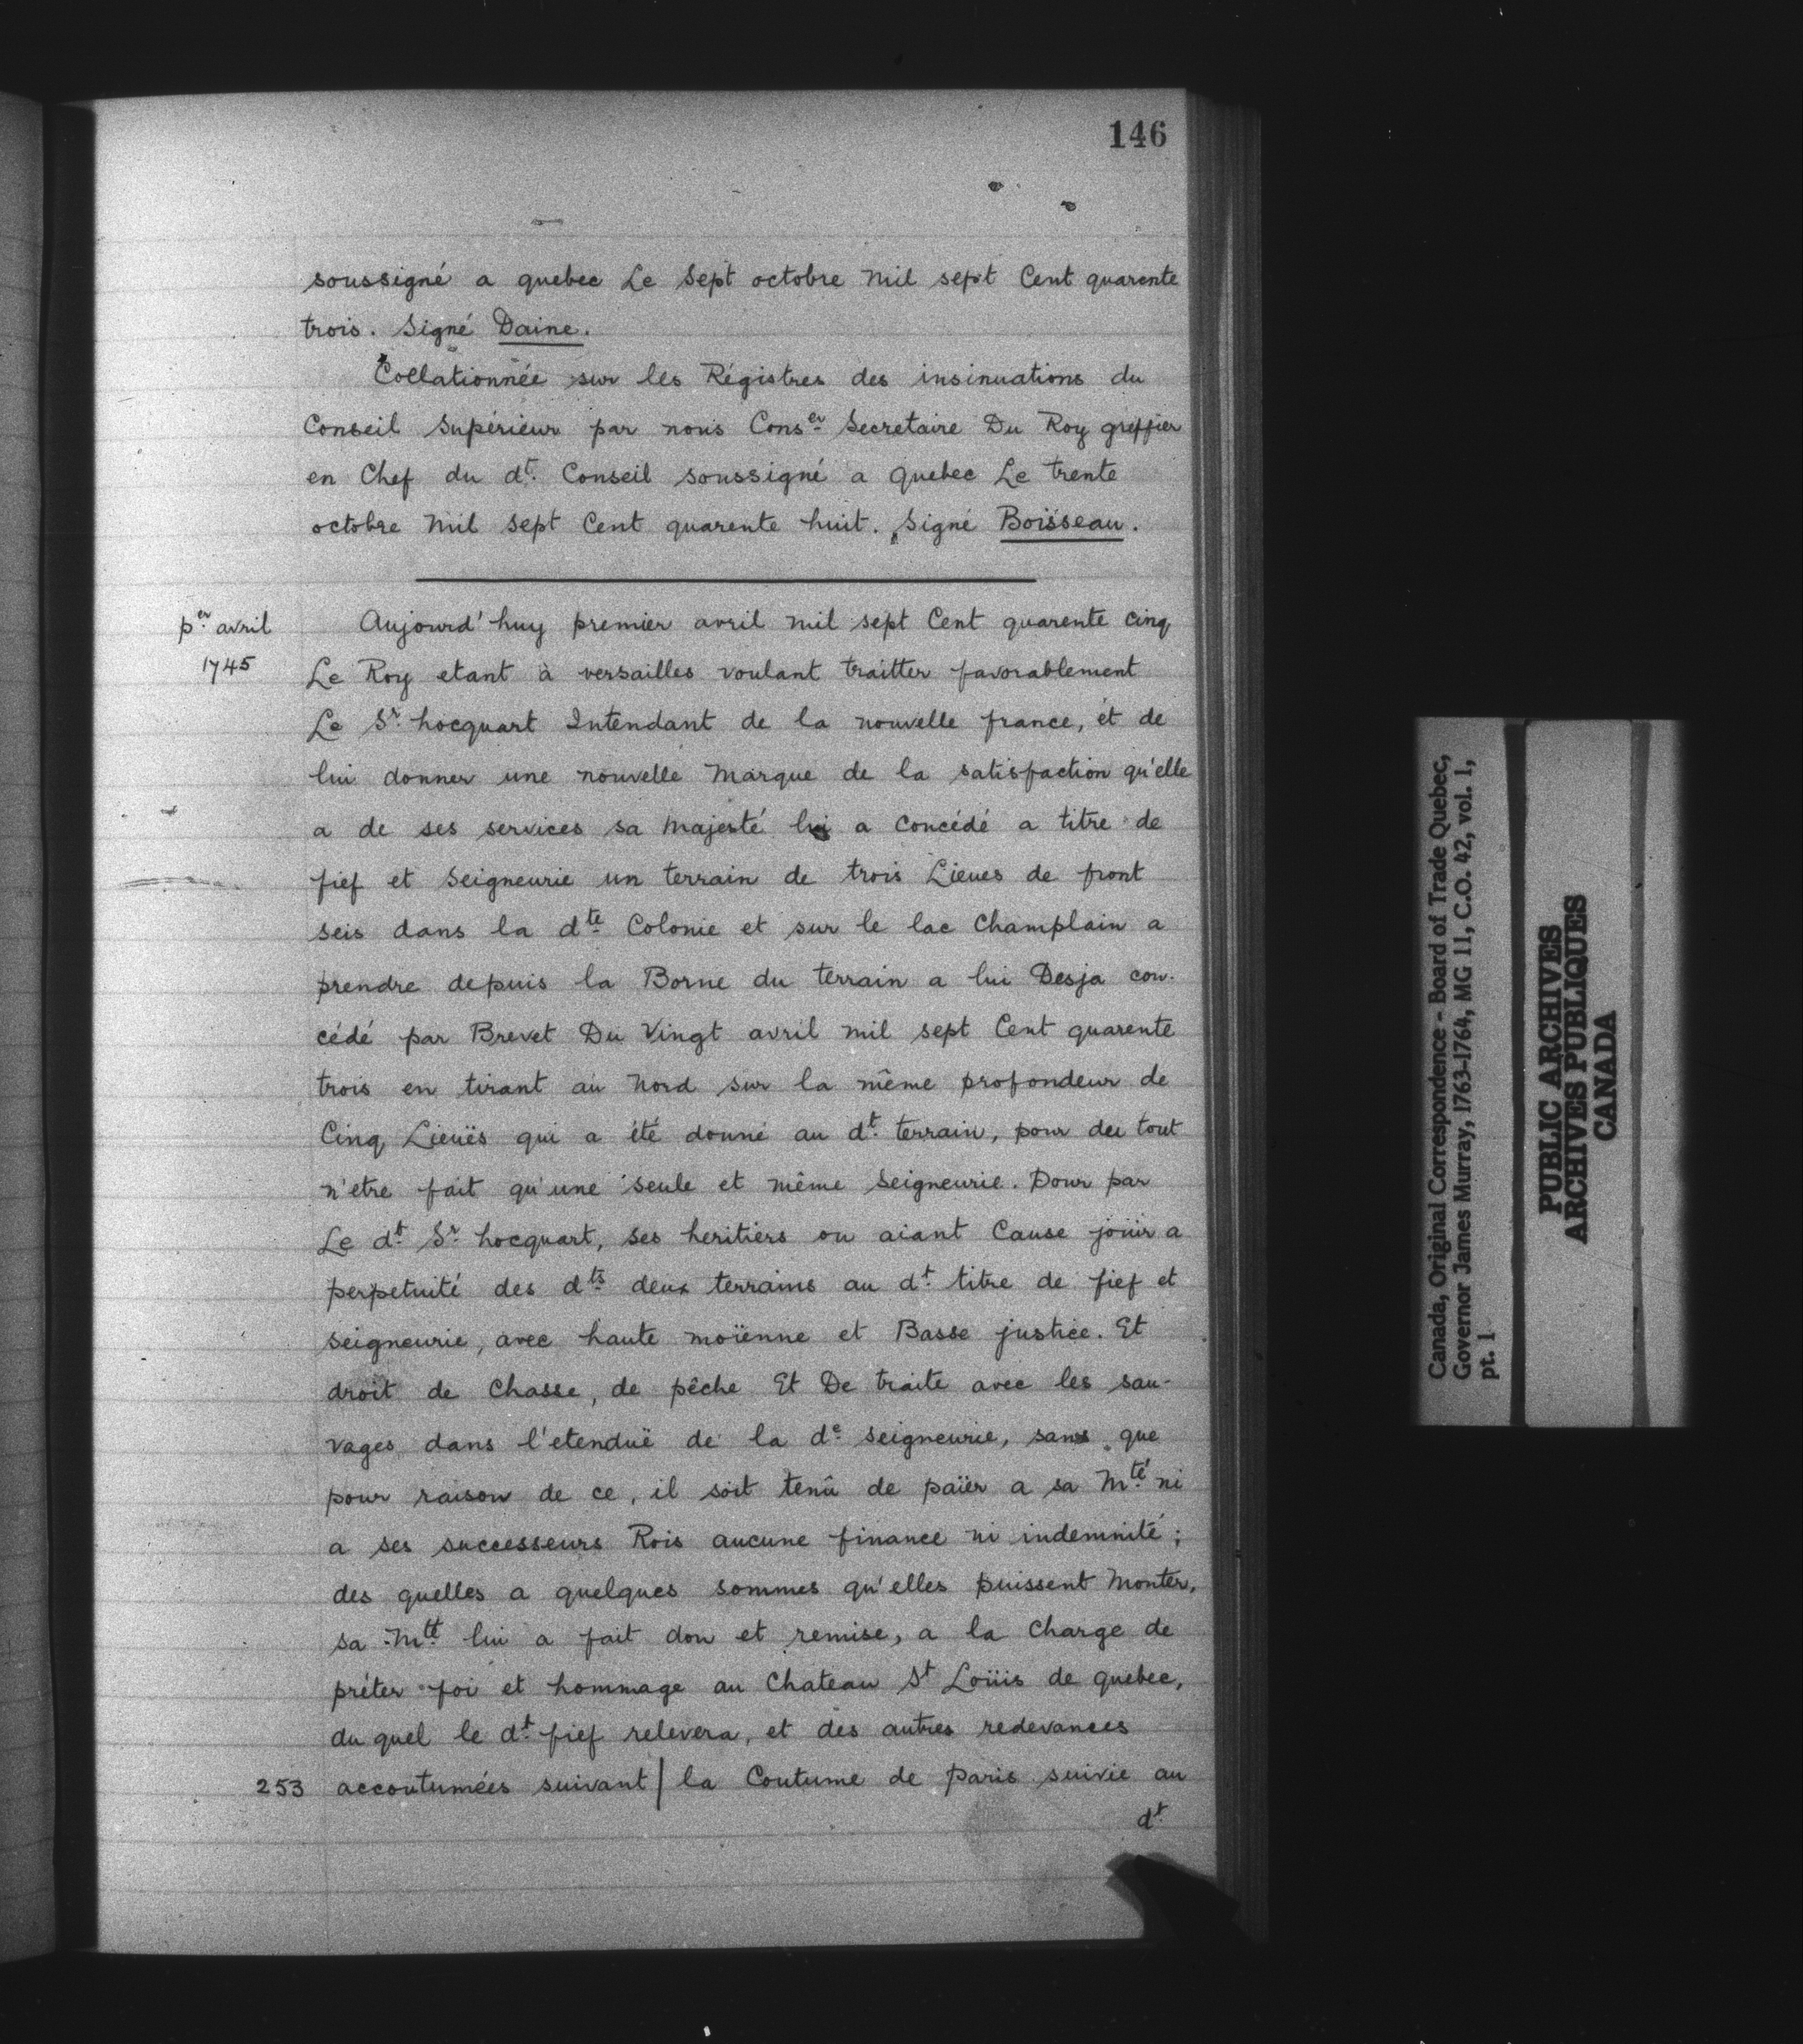 146
soussigné a quebec Le Sept octobre mil sept Cent quarente
trois. Signé Daine.
Collationnée sur les Régistres des insinuations du
Conseil Supérieur par nous Conser Secretaire Du Roy greffier
en Chef du dt. Conseil soussigné a Quebec Le trente
octobre mil sept Cent quarente huit. Signé Boisseau.
per avril
1745
Aujourd'huy premier avril mil sept Cent quarente cinq
Le Roy etant à versailles voulant traitter favorablement
Le Sr. hocquart Intendant de la nouvelle france, et de
lui donner une nouvelle Marque de la satisfaction qu'elle
a de ses services sa Majesté lui a Concédé a titre de
fief et Seigneurie un terrain de trois Lieues de front
seis dans la dte Colonie et sur le lac Champlain a
prendre depuis la Borne du terrain a lui Desja con-
cédé par Brevet Du Vingt avril mil sept Cent quarente
trois en tirant au Nord sur la même profondeur de
Cinq Lieuës qui a été donné au dt. terrain, pour du tout
n'etre fait qu'une seule et même Seigneurie. Pour par
Le dt. Sr. hocquart, ses heritiers ou aiant Cause joüir a
perpetuité des dts. deux terrains au dt. titre de fief et
seigneurie, avec haute moïenne et Basse justice. Et
droit de Chasse, de pêche Et De traite avec les sau-
vages dans l'etenduë de la de. seigneurie, sans que
pour raison de ce, il soit tenû de païer a sa Mté. ni
a ses successeurs Rois aucune finance ni indemnité;
des quelles a quelques sommes qu'elles puissent Monter,
sa Mté. lui a fait don et remise, a la Charge de
préter foi et hommage au Chateau St Loüis de quebec,
du quel le dt. fief relevera, et des autres redevances
253 accoutumées suivant | la Coutume de Paris suivie au
dt.
Canada, Original Correspondence - Board of Trade Quebec,
Governor James Murray, 1763-1764, MG 11, C.O. 42, vol. 1,
pt. 1
PUBLIC ARCHIVES
ARCHIVES PUBLIQUES
CANADA